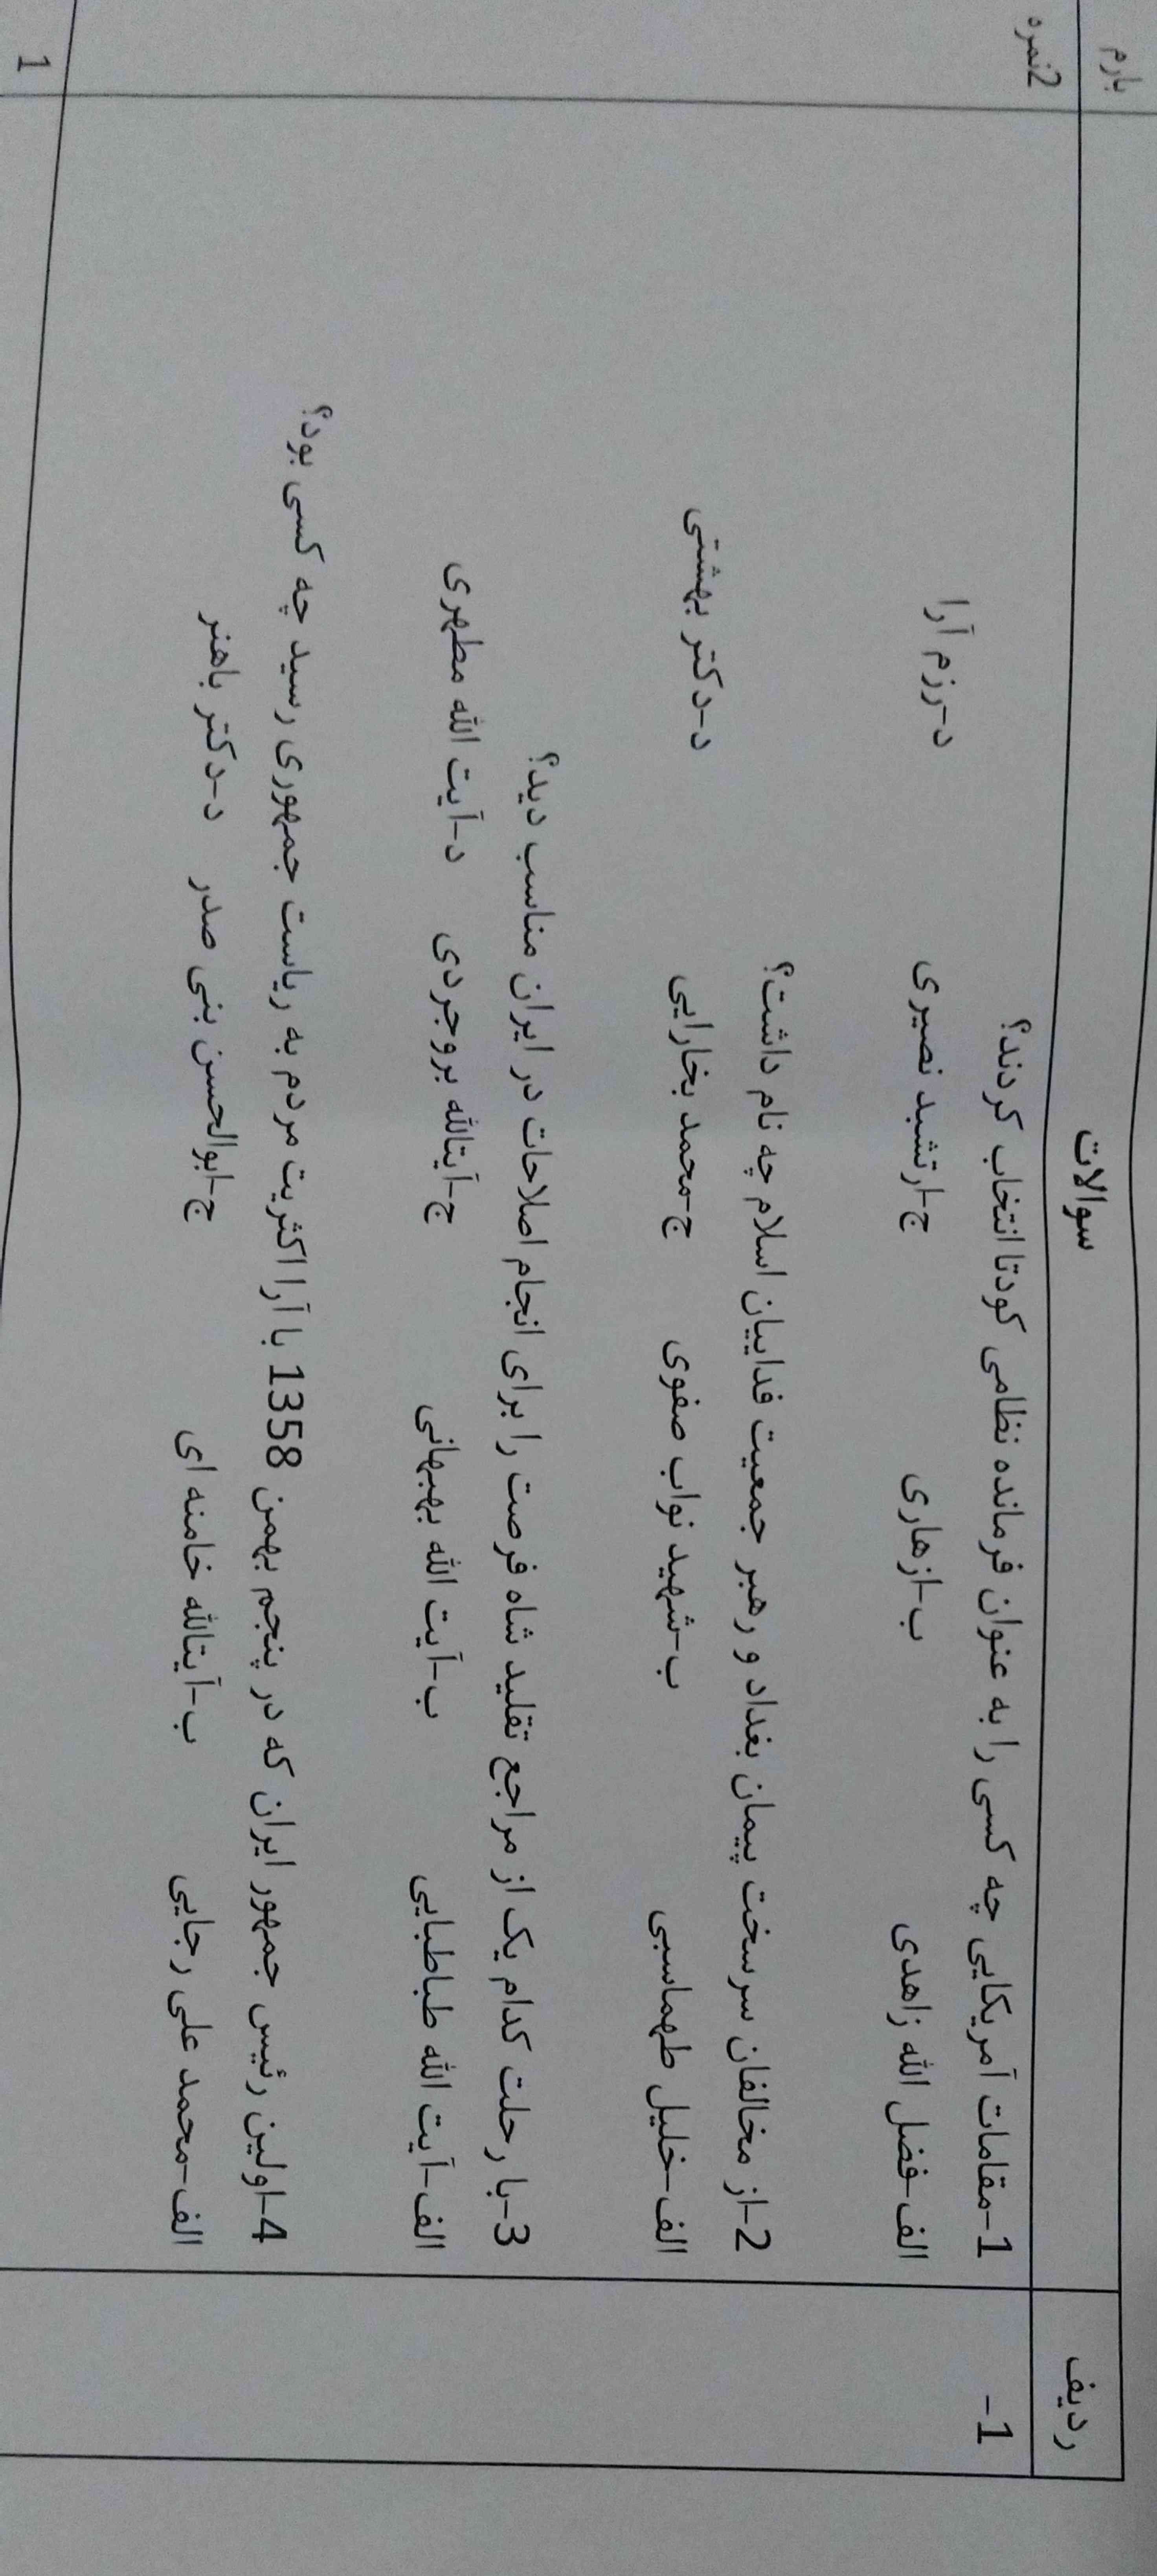 ردیف سوالات بارم
1- 1-مقامات آمریکایی چه کسی را به عنوان فرمانده نظامی کودتا انتخاب کردند؟ 2نمره
الف-فضل الله زاهدی ب-ازهاری ج-ارتشبد نصیری د-رزم آرا
2-از مخالفان سرسخت پیمان بغداد و رهبر جمعیت فداییان اسلام چه نام داشت؟
الف-خلیل طهماسبی ب-شهید نواب صفوی ج-محمد بخارایی د-دکتر بهشتی
3-با رحلت کدام یک از مراجع تقلید شاه فرصت را برای انجام اصلاحات در ایران مناسب دید؟
الف-آیت الله طباطبایی ب-آیت الله بهبهانی ج-آیتالله بروجردی د-آیت الله مطهری
4-اولین رئیس جمهور ایران که در پنجم بهمن 1358 با آرا اکثریت مردم به ریاست جمهوری رسید چه کسی بود؟
الف-محمد علی رجایی ب-آیتالله خامنه ای ج-ابوالحسن بنی صدر د-دکتر باهنر
1